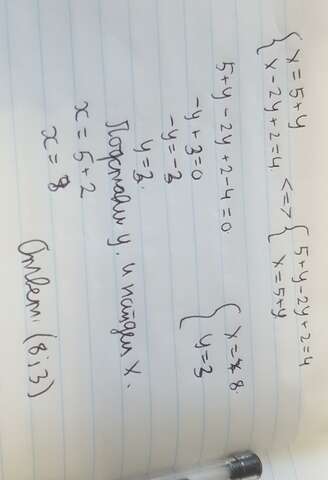 { x=5+y <=> { 5+y-2y+2=4
x-2y+2=4 x=5+y
5+y-2y+2-4=0
-y+3=0 { x=8
-y=-3 y=3
y=3.
Подставим y и найдем x.
x=5+2
x=8
Ответ: (8;3)